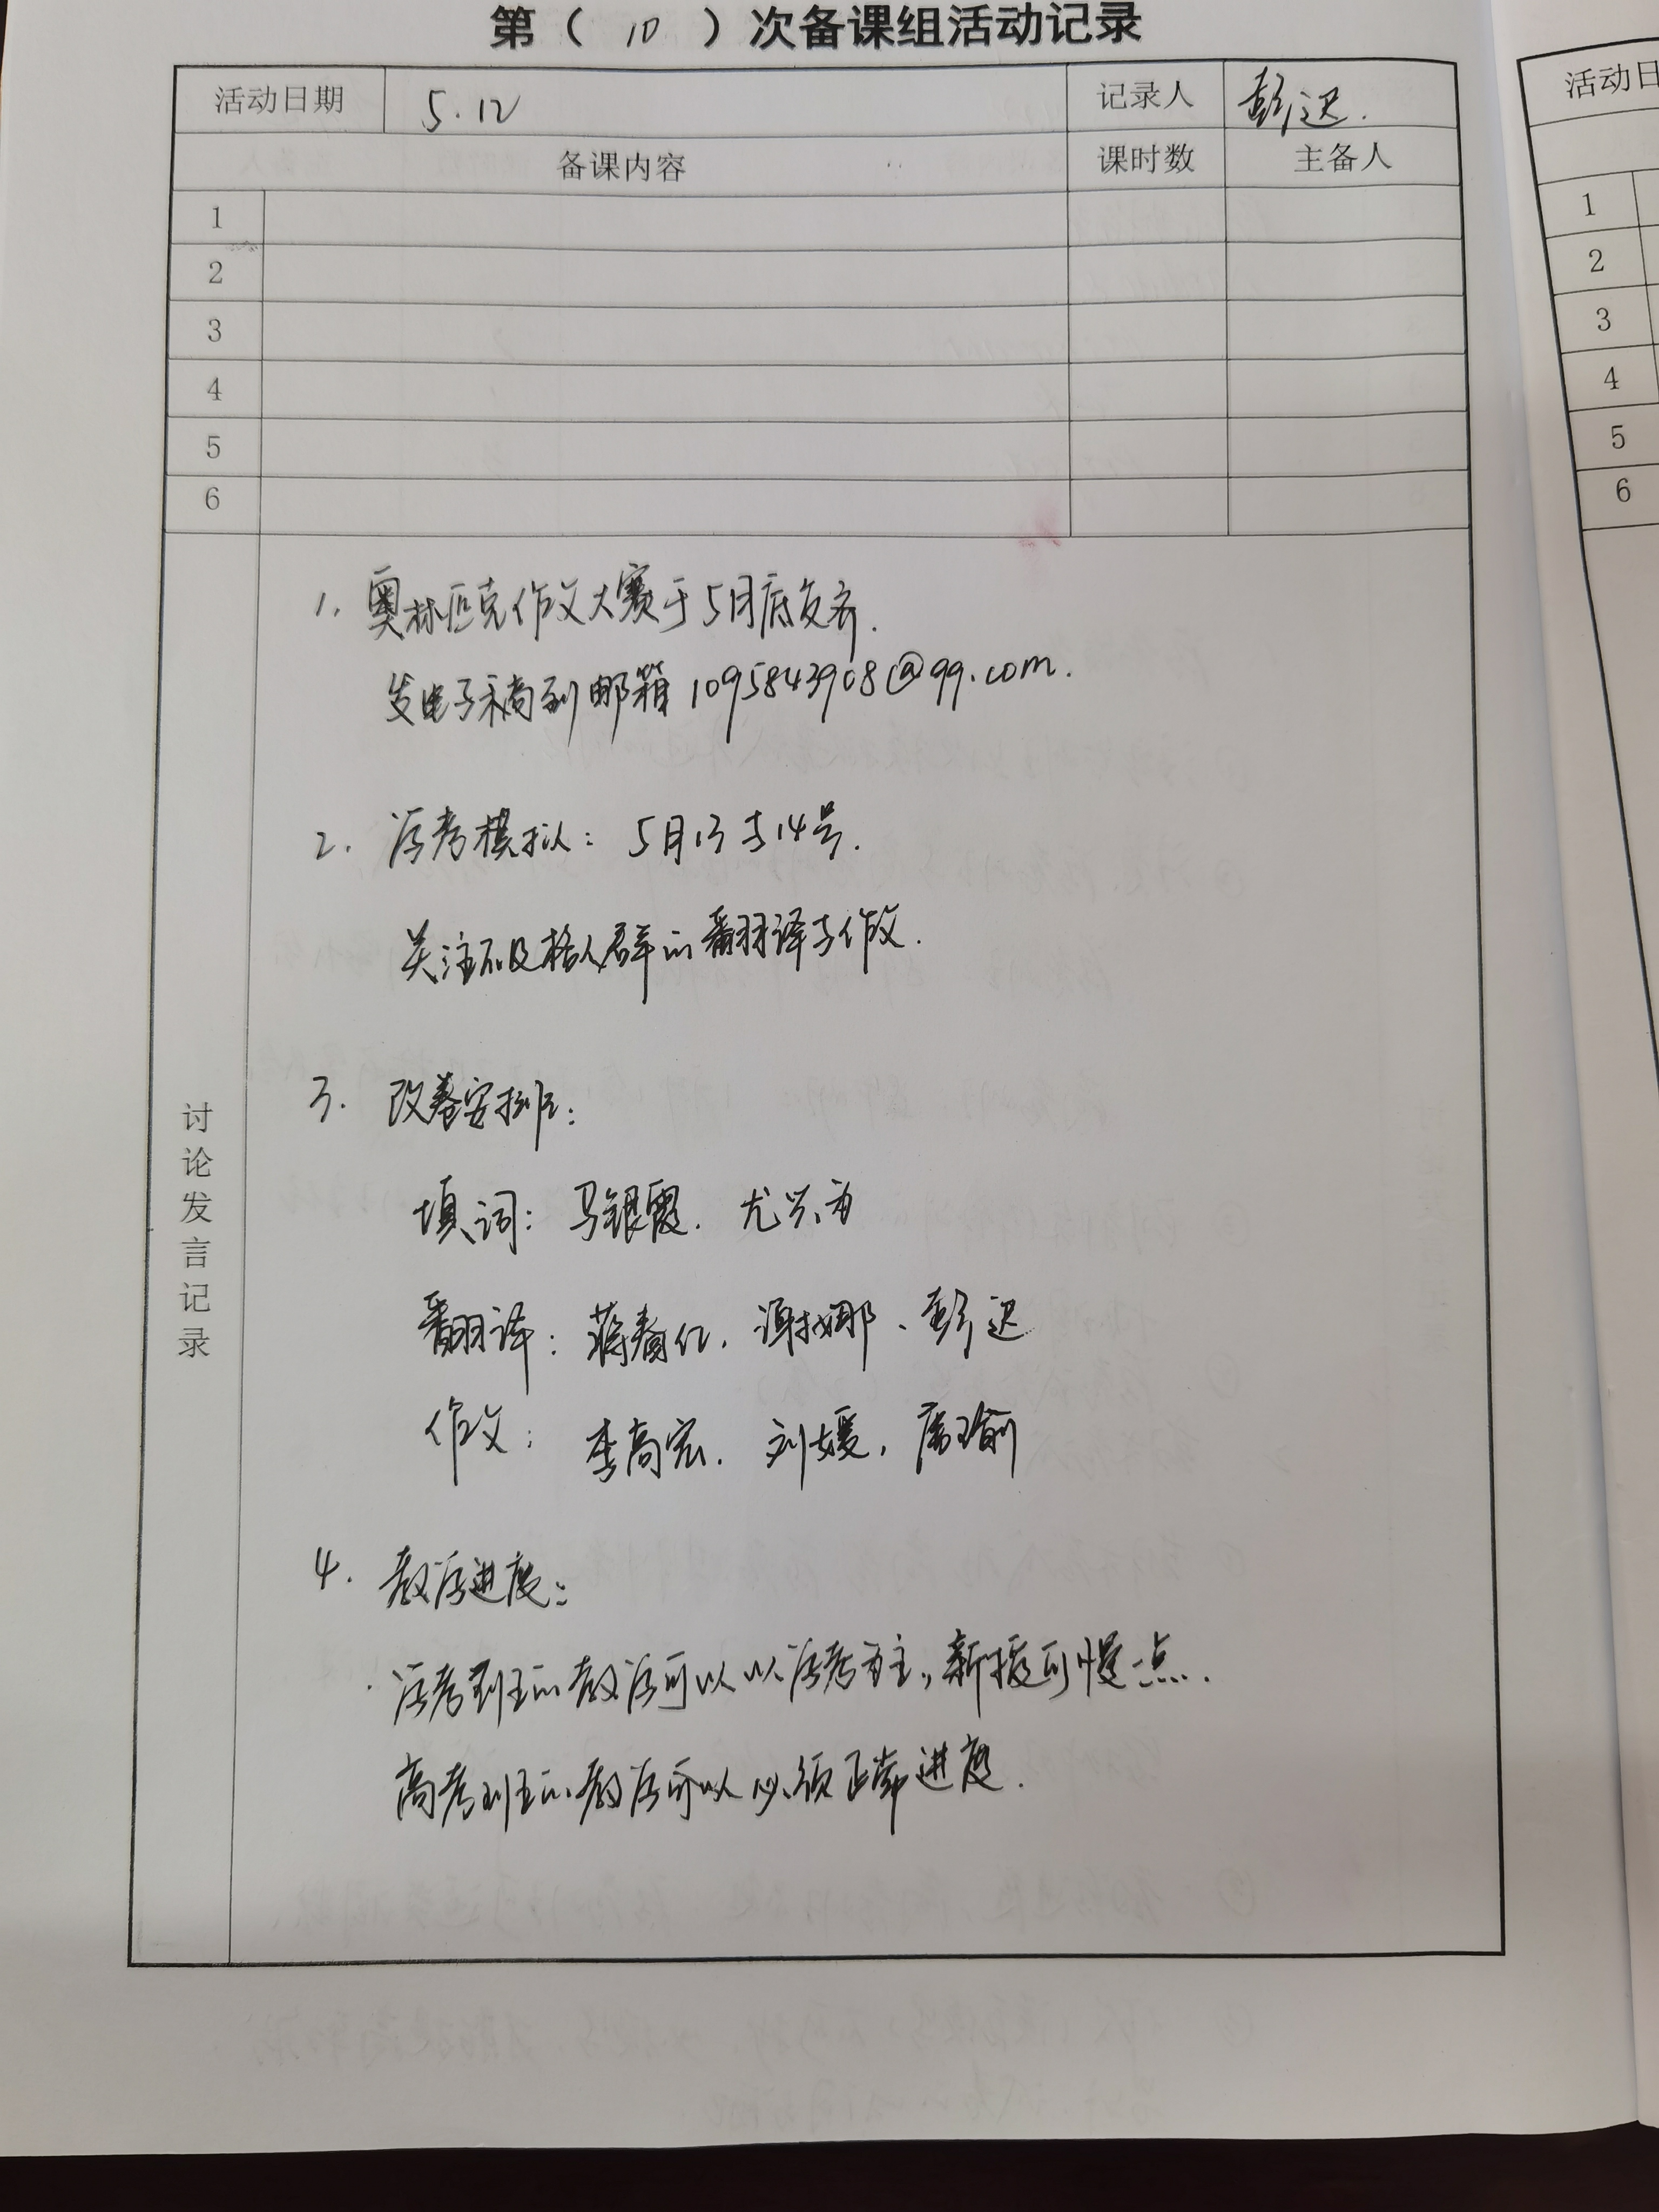 第（ 10 ）次备课组活动记录
活动日期 5.12 记录人 彭迟.
备课内容 课时数 主备人
1
2
3
4
5
6
讨论发言记录
1. 奥林匹克作文大赛于5月底交齐.
发电子稿到邮箱1095843908@qq.com.
2. 活考模拟: 5月13与14号.
关注不及格人群的翻译与作文.
3. 改卷安排:
填词: 马银霞. 尤兴
翻译: 蒋春仁. 谢娜、彭迟
作文: 李高宏. 刘媛. 唐瑜
4. 教活进度:
活考班的教活可以以活考为主, 新授可慢一点.
高考班的教活可以必须正常进度.
活动日
1
2
3
4
5
6